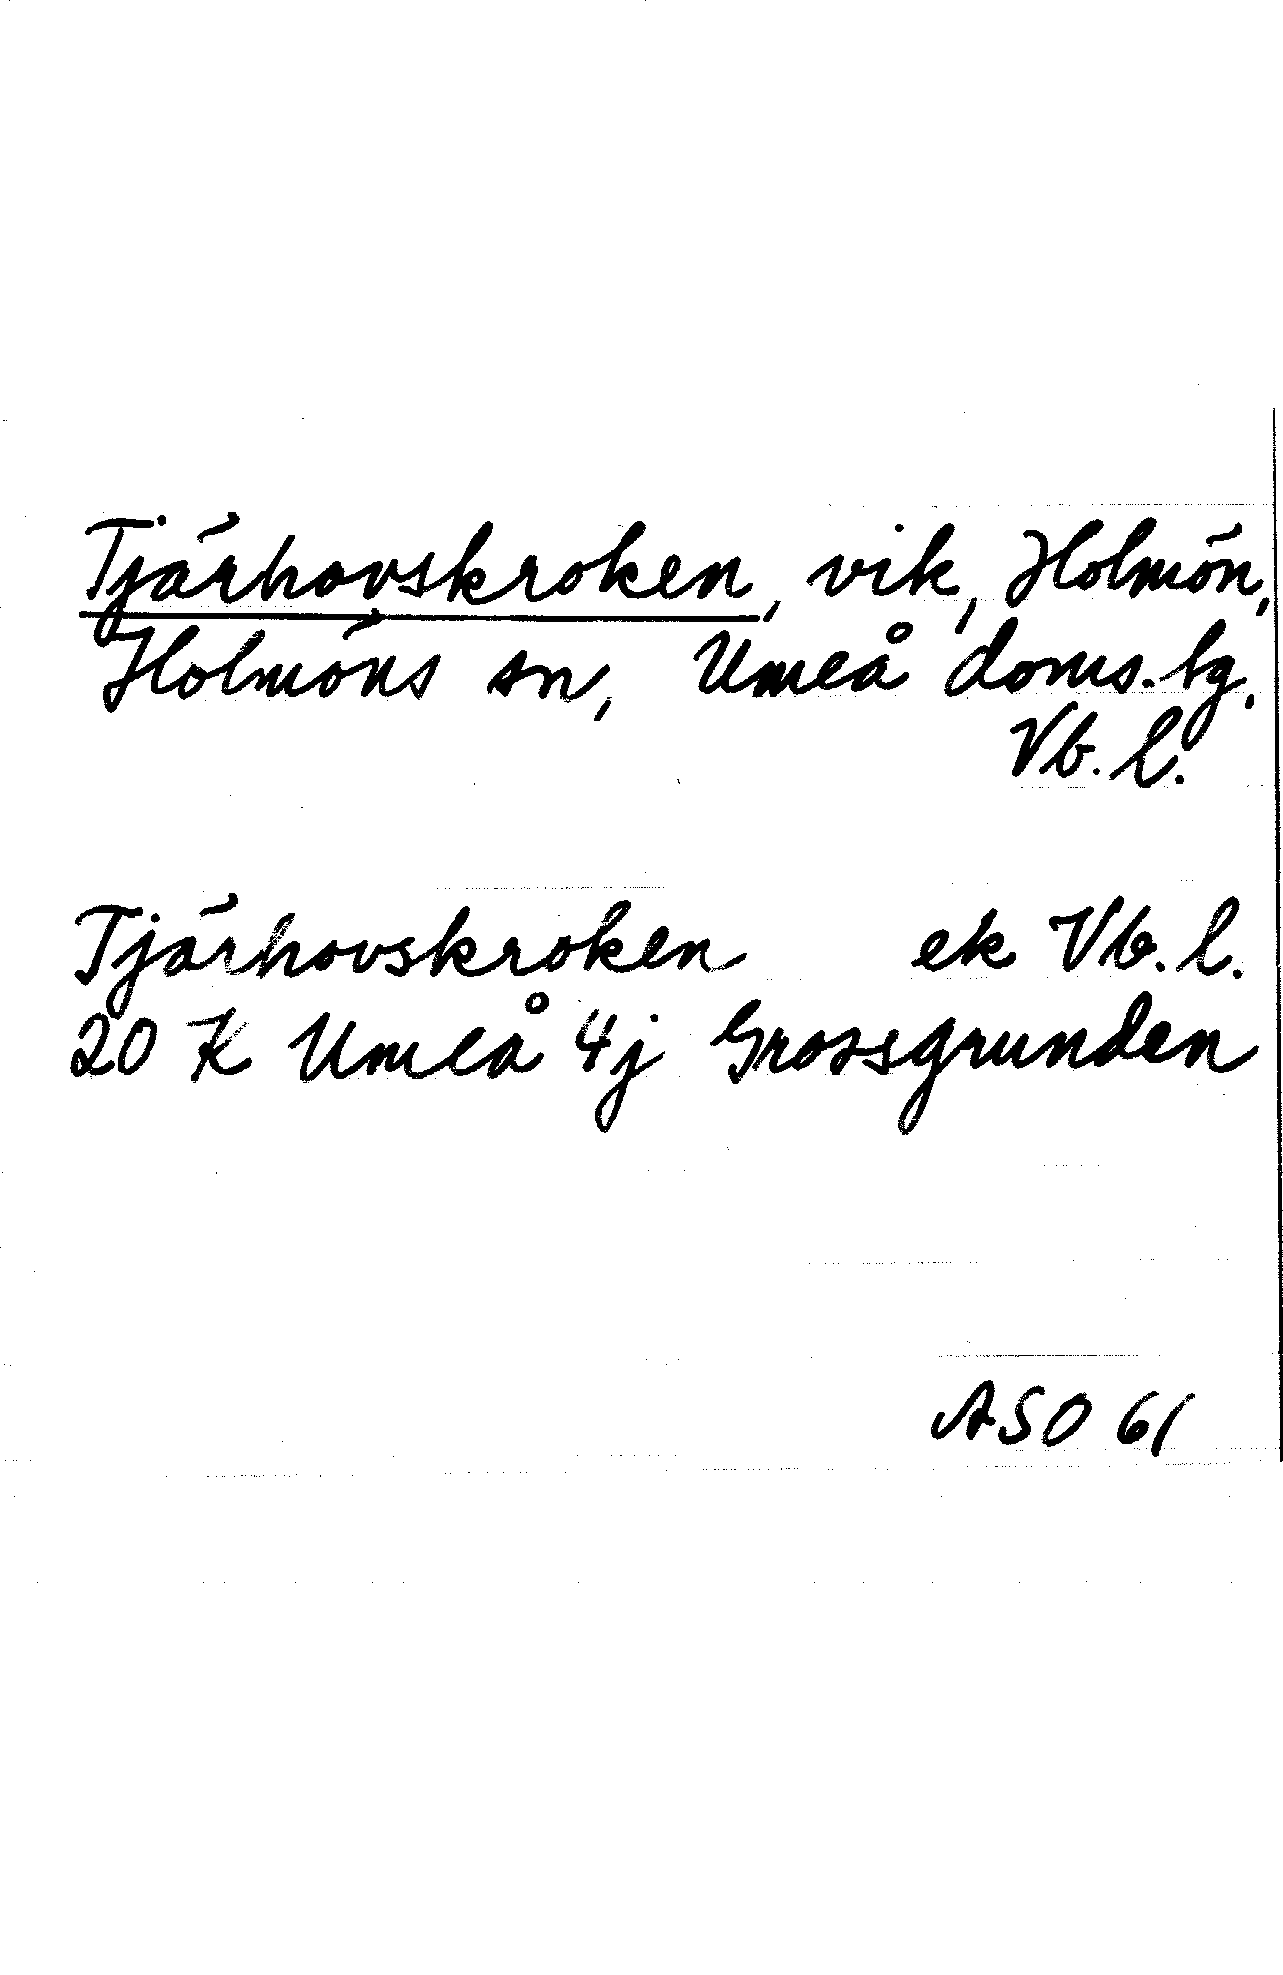 Tjärhovskroken, vik, Holmön,
Holmöns sn, Umeå doms.bg.
Vb. l.
Tjärhovskroken ek Vb. l.
20 K Umeå 4j Grossgrunden
ASO 61